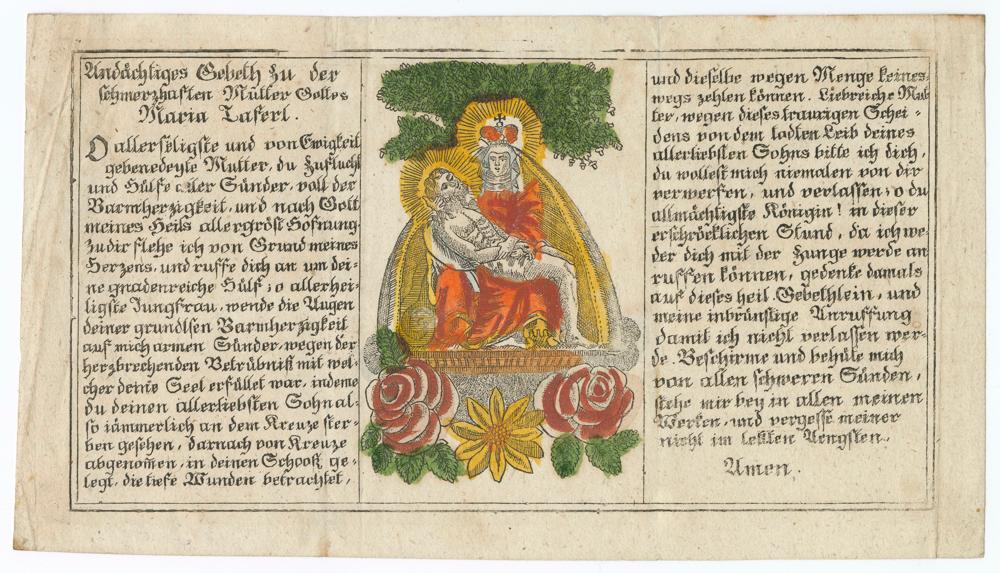 Andächtiges Gebeth zu der
schmerzhaften Mutter Gottes
Maria Taferl.
O allerseligste und von Ewigkeit
gebenedeyte Mutter, du Zuflucht
und Hülfe aller Sünder, voll der
Barmherzigkeit, und nach Gott
meines Heils allergröst Hofnung,
zu dir flehe ich von Grund meines
Herzens, und ruffe dich an um dei-
ne gnadenreiche Hülf, o allerhei-
ligste Jungfrau, wende die Augen
deiner grundlsen Barmherzigkeit
auf mich armen Sünder, wegen der
herzbrechenden Betrübniß mit wel-
cher deine Seel erfüllet war, indeme
du deinen allerliebsten Sohn al-
so jämmerlich an dem Kreuze ster-
ben gesehen, darnach von Kreuze
abgenom̄en, in deinen Schooß ge-
legt, die tiefe Wunden betrachtet,
und dieselbe wegen Menge keines-
wegs zehlen können. Liebreiche Mut-
ter, wegen dieses traurigen Schei-
dens von dem todten Leib deines
allerliebsten Sohns bitte ich dich,
du wollest mich niemalen von dir
verwerfen, und verlassen, o du
allmächtigste Königin! in dieser
erschröcklichen Stund, da ich we-
der dich mit der Zunge werde an
ruffen können, gedenke damals
auf dieses heil. Gebethlein, und
meine inbrünstige Anruffung
damit ich nicht verlassen wer-
de. Beschirme und behüte mich
von allen schweren Sünden,
stehe mir bey in allen meinen
Werken, und vergesse meiner
nicht im letzten Aengsten.
Amen.